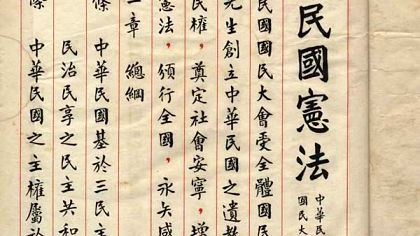 民國憲法
中華民
國民大
民國國民大會受全體國民
先生創立中華民國之遺教
民權，奠定社會安寧，增
憲法，頒行全國，永矢咸
一章 總綱
條 中華民國基於三民主
民治民享之民主共和
條 中華民國之主權屬於